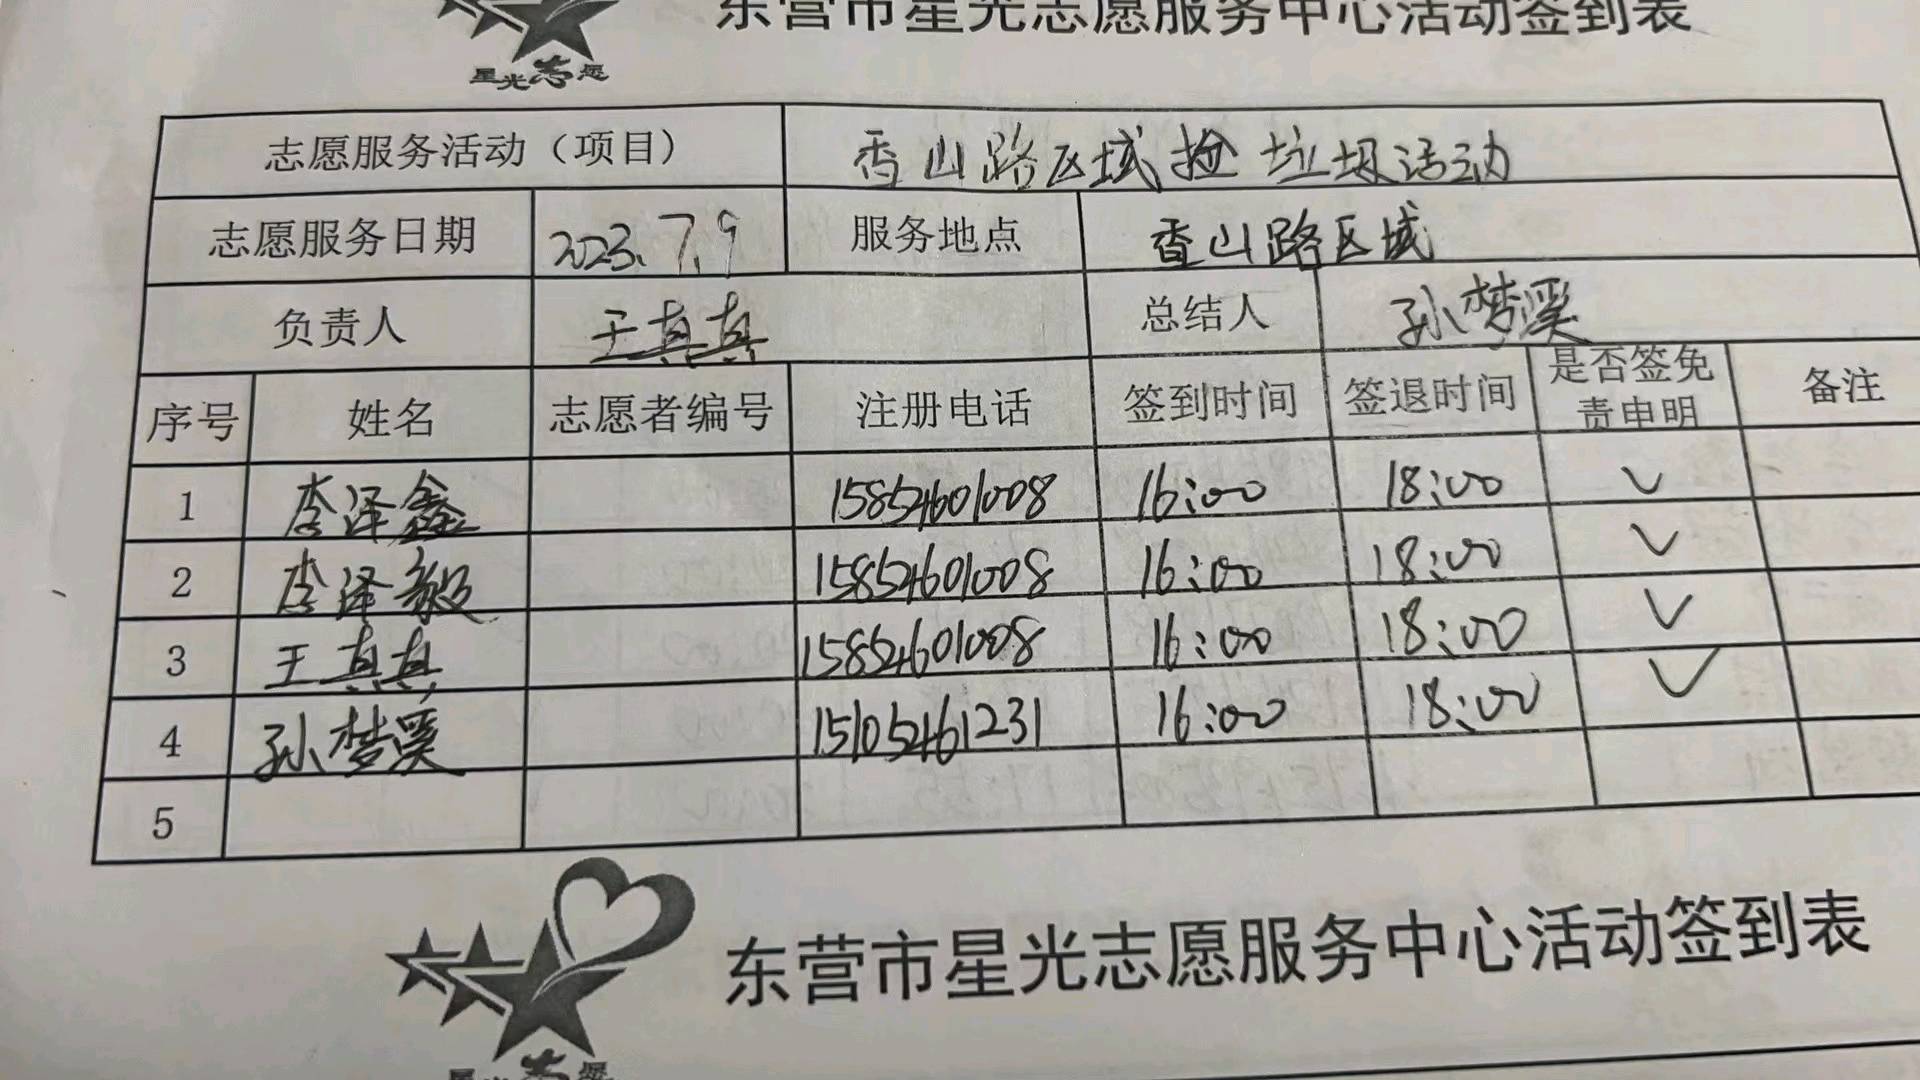 东营市星光志愿服务中心活动签到表
星光志愿
志愿服务活动（项目） 香山路区域捡垃圾活动
志愿服务日期 2023.7.9 服务地点 香山路区域
负责人 王真真 总结人 孙梦溪
序号 姓名 志愿者编号 注册电话 签到时间 签退时间 是否签免责申明 备注
1 李泽鑫 15854601008 16:00 18:00 ✓
2 李泽毅 15854601008 16:00 18:00 ✓
3 王真真 15854601008 16:00 18:00 ✓
4 孙梦溪 15105461231 16:00 18:00 ✓
5
东营市星光志愿服务中心活动签到表
星光志愿